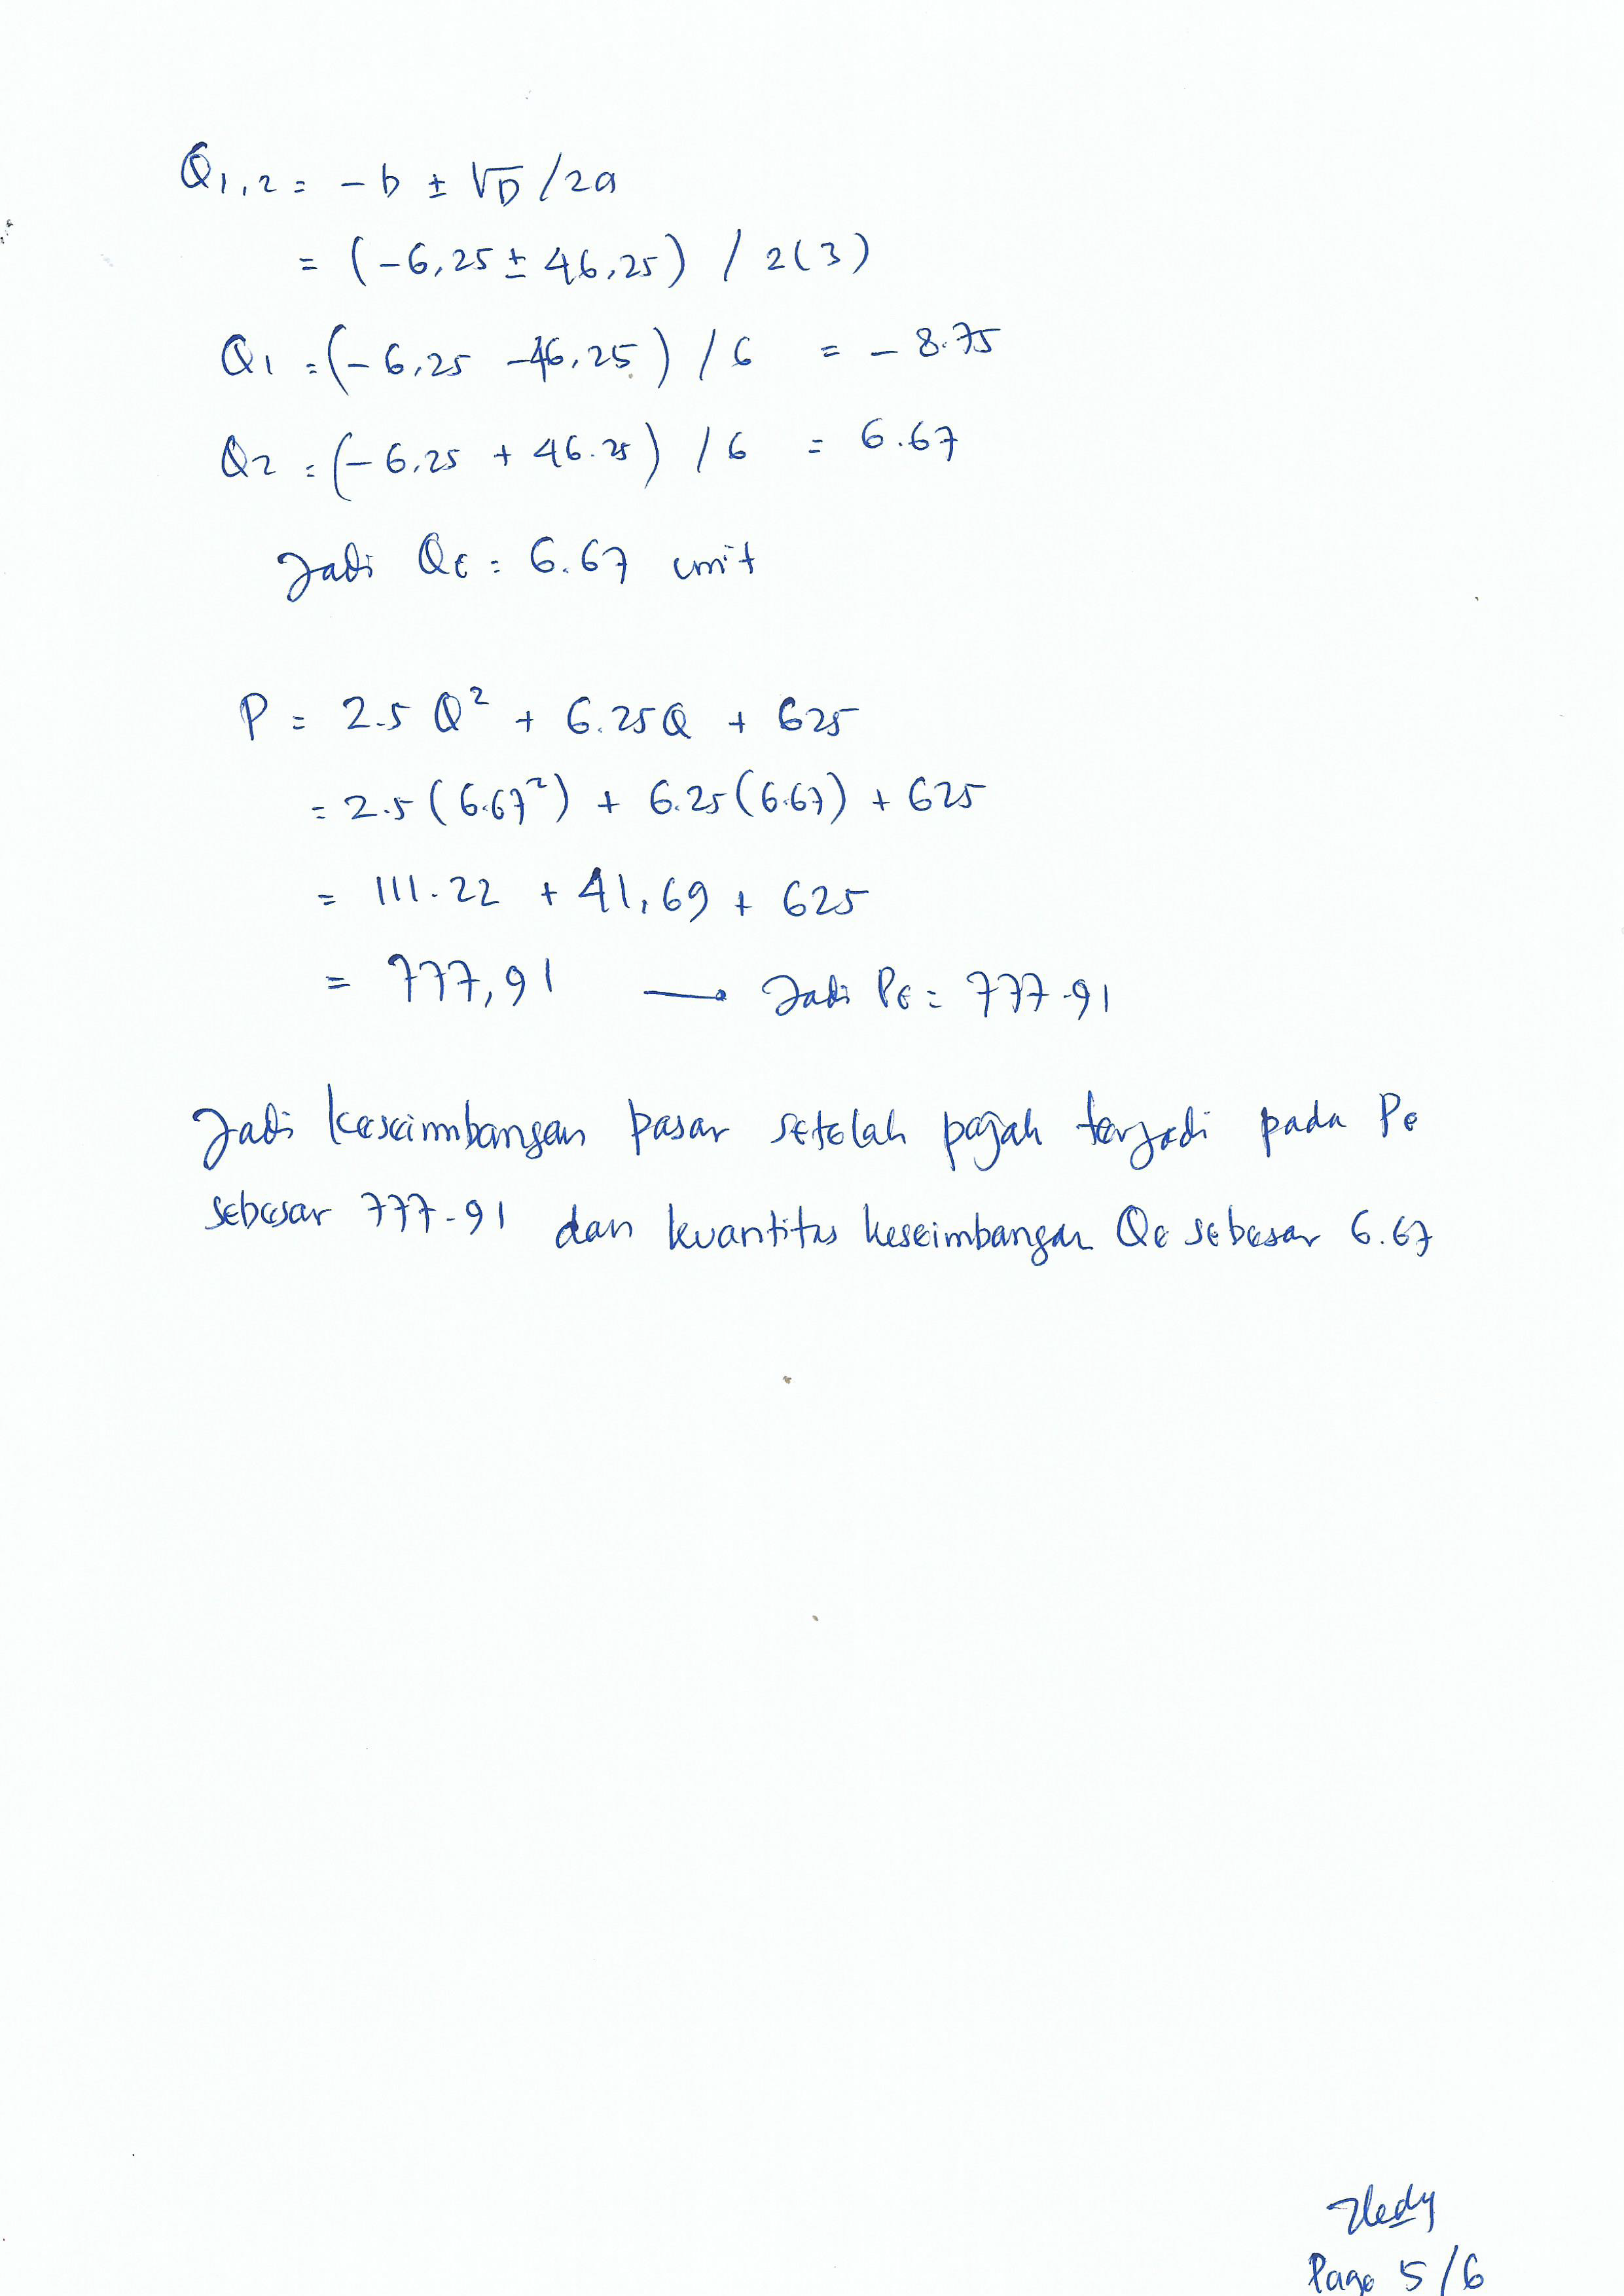 Q1,2 = -b ± √D /2a
= (-6,25 ± 46,25) / 2(3)
Q1 = (-6,25 -46,25) / 6 = -8.75
Q2 = (-6,25 + 46.25) / 6 = 6.67
Jadi QE = 6.67 unit
P = 2.5 Q² + 6.25Q + 625
= 2.5 (6.67²) + 6.25(6.67) + 625
= 111.22 + 41,69 + 625
= 777,91 → Jadi PE = 777.91
Jadi keseimbangan pasar setelah pajak terjadi pada Pe
sebesar 777.91 dan kuantitas keseimbangan Qe sebesar 6.67
Hedy
Page 5/6